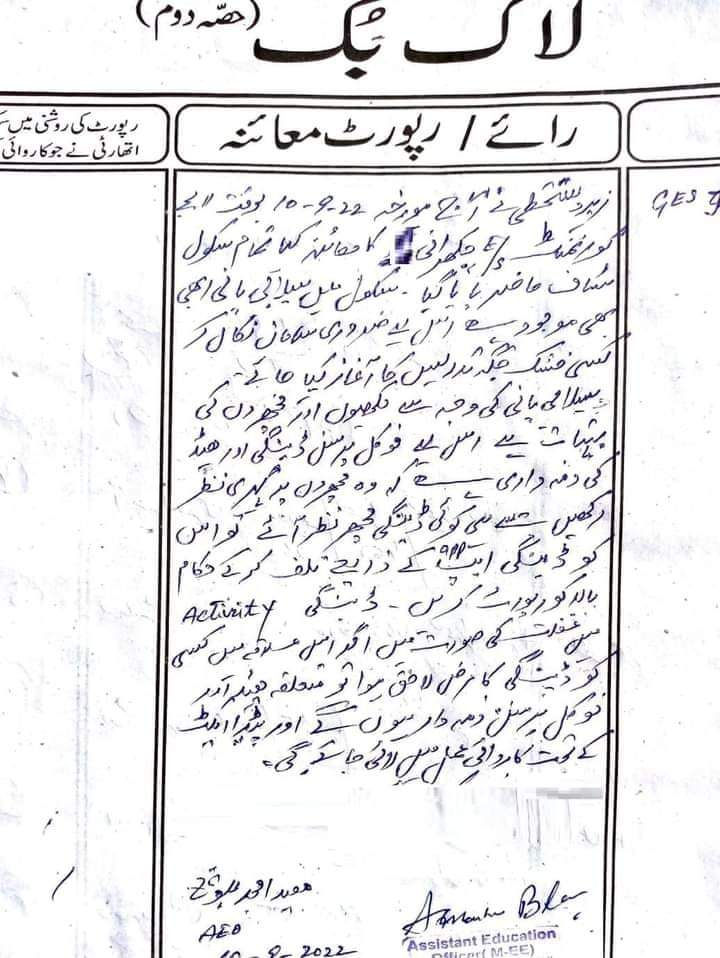 لاگ بُک (حصّہ دوم)
رائے / رپورٹ معائنہ
رپورٹ کی روشنی میں
اتھارٹی نے جو کاروائی
GES
زیر دستخطی نے آج مورخہ 10-9-22 بوقت 11 بجے
گورنمنٹ E/S جکھڑانی کا معائنہ کیا تمام سکول
سٹاف حاضر پایا گیا۔ سکول میں سیلابی پانی ابھی
بھی موجود ہے اس لیے ضروری سامان نکال کر
کسی خشک جگہ تدریس کا آغاز کیا جائے۔
سیلابی پانی کی وجہ سے مکھیوں اور مچھروں کی
بہتات ہے اس لیے فوکل پرسن ڈینگی اور ہیڈ
کی ذمہ داری ہے کہ وہ مچھروں پر گہری نظر
رکھیں جیسے ہی کوئی ڈینگی مچھر نظر آئے تو اس
کو ڈینگی ایپ app کے ذریعے تلف کر کے حکام
بالا کو رپورٹ کریں۔ ڈینگی Activity
میں غفلت کی صورت میں اگر اس علاقے میں کسی
کو ڈینگی کا مرض لاحق ہوا تو متعلقہ ہیڈ اور
فوکل پرسن ذمہ دار ہوں گے اور پیڈا ایکٹ
کے تحت کاروائی عمل میں لائی جائے گی۔
AEO
10-9-2022
Assistant Education
Officer( M-EE)